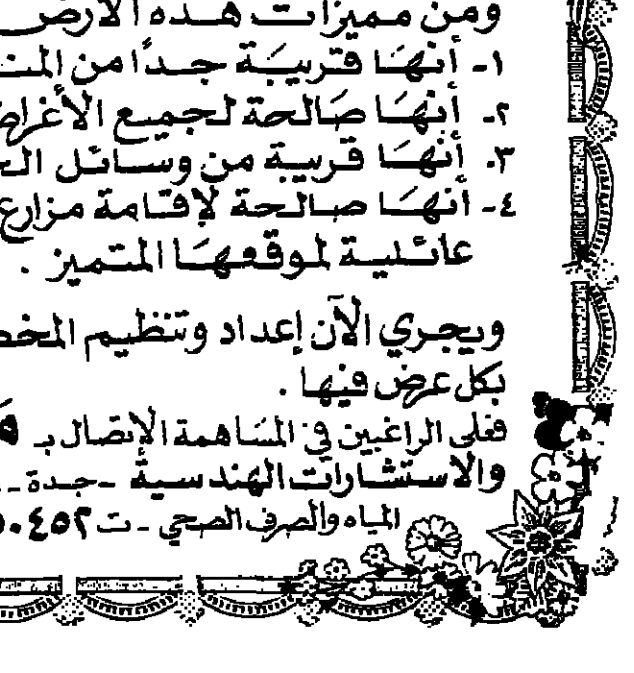 ومن مميزات هذه الأرض
١- أنها قريبة جدًا من
٢- أنها صالحة لجميع
٣- أنها قريبة من وسائل
٤- أنها صالحة لإقامة مزارع
عائلية لموقعها المتميز .
ويجري الآن إعداد وتنظيم
بكل عرض فيها .
فعلى الراغبين في المساهمة الإتصال بـ
والاستشارات الهندسية - جدة -
المياه والصرف الصحي - ت